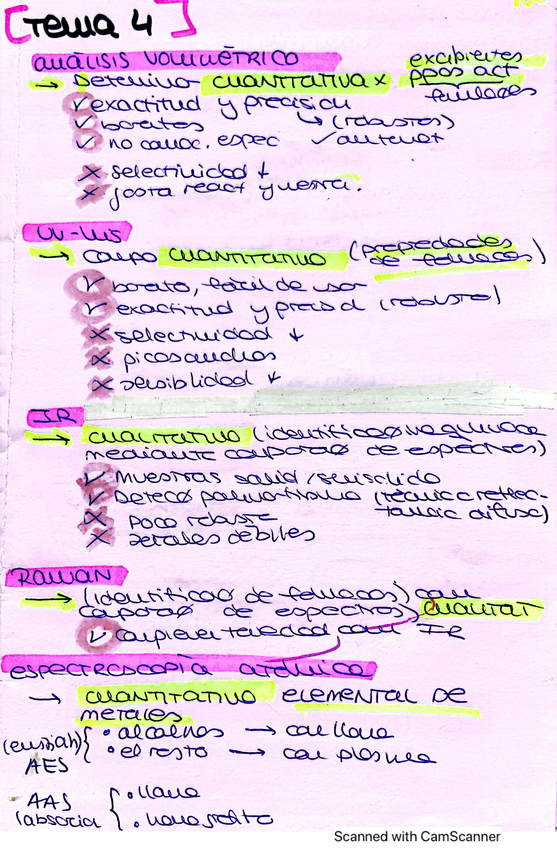 [Tema 4]
ANÁLISIS VOLUMÉTRICO
→ Determino cuantitativa x excipientes
ppos act
fármacos
✓ exactitud y precisión
↳ (robustos)
✓ baratos
✓ no conoc. espec ✓ automat
✗ selectividad ↓
✗ gasta react y muestra.
UV-VIS
→ cuantitativo (propiedades
de fármacos)
✓ barato, fácil de usar
✓ exactitud y precisd (robusto)
✗ selectividad ↓
✗ picos anchos
✗ sensibilidad ↓
IR
→ cualitativo (identificaco inequívoca
mediante comparao de espectros)
✓ Muestras solid/semisolido
✓ Detecco polimorfismo (técnica reflec-
tancia difusa)
✗ poco robusta
✗ señales débiles
RAMAN
→ (identificao de fármacos) con
comparao de espectros) cualitat
✓ complementariedad con IR
ESPECTROSCOPÍA ATÓMICA
→ cuantitativo ELEMENTAL DE
metales
(emisión) { • alcalinos → con llama
AES • el resto → con plasma
AAS { • llama
(absorció • horno grafito
Scanned with CamScanner